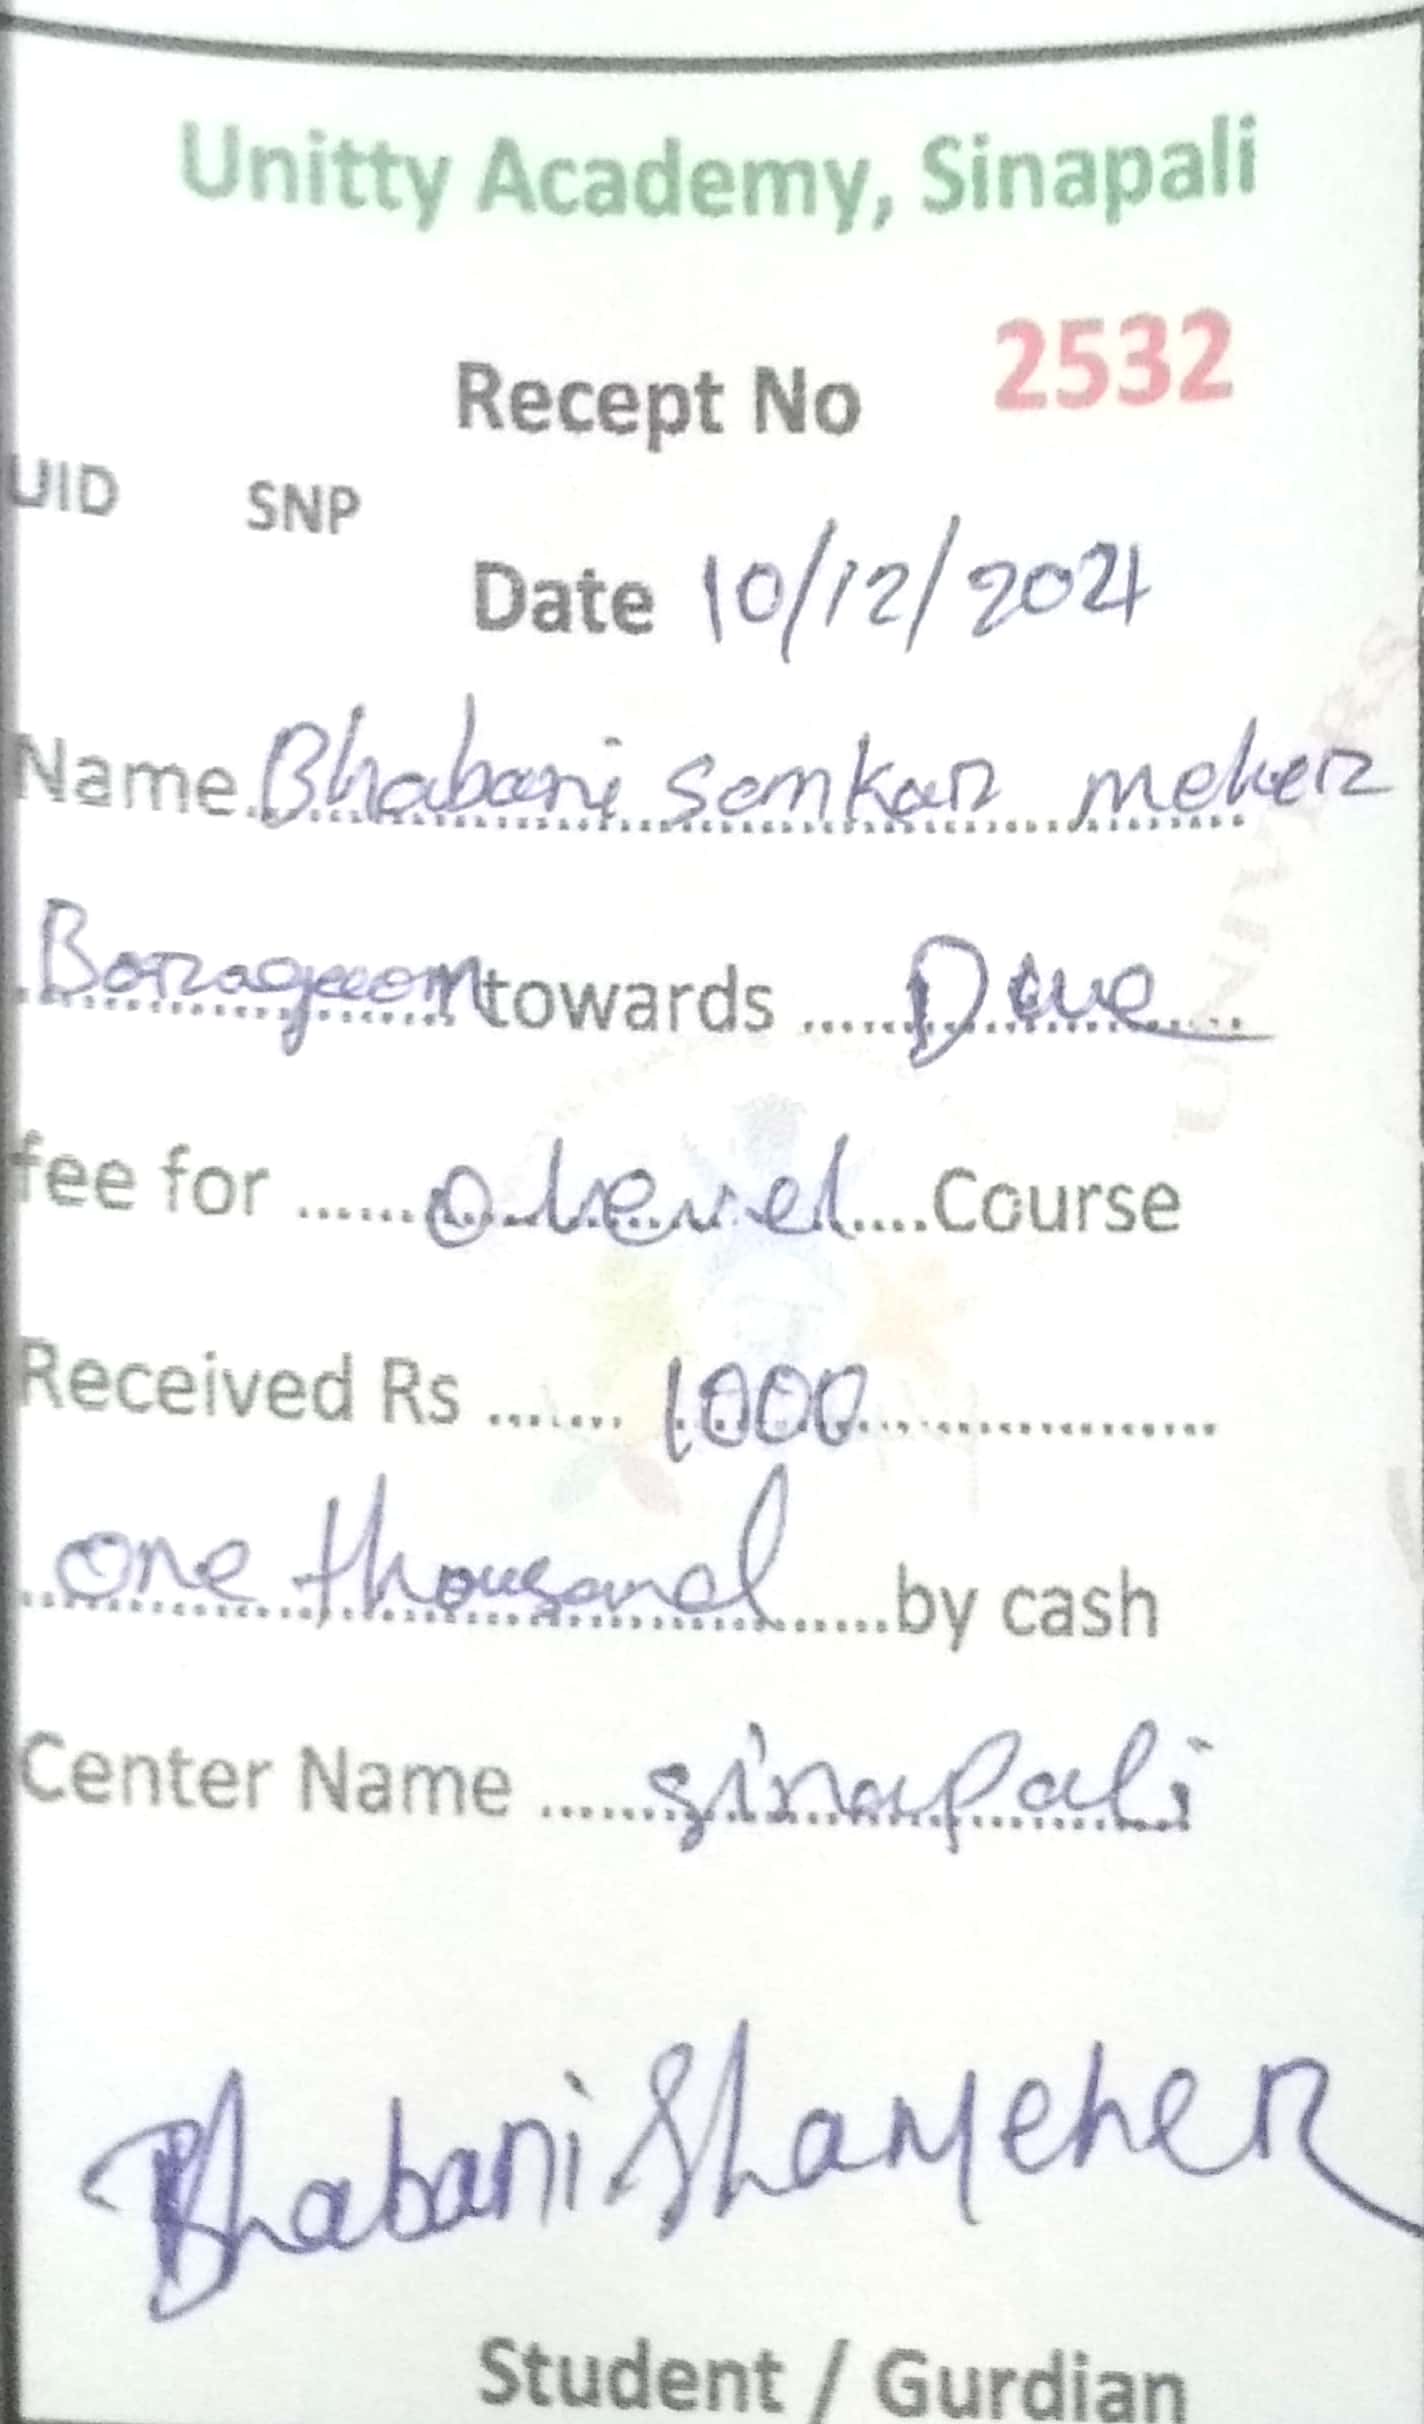 Unitty Academy, Sinapali
Recept No 2532
UID SNP
Date 10/12/2021
Name Bhabani Sankar meher
Boragaon towards Due
fee for O Level Course
Received Rs 1000
one thousand by cash
Center Name Sinapali
Bhabani Sha Meher
Student / Gurdian